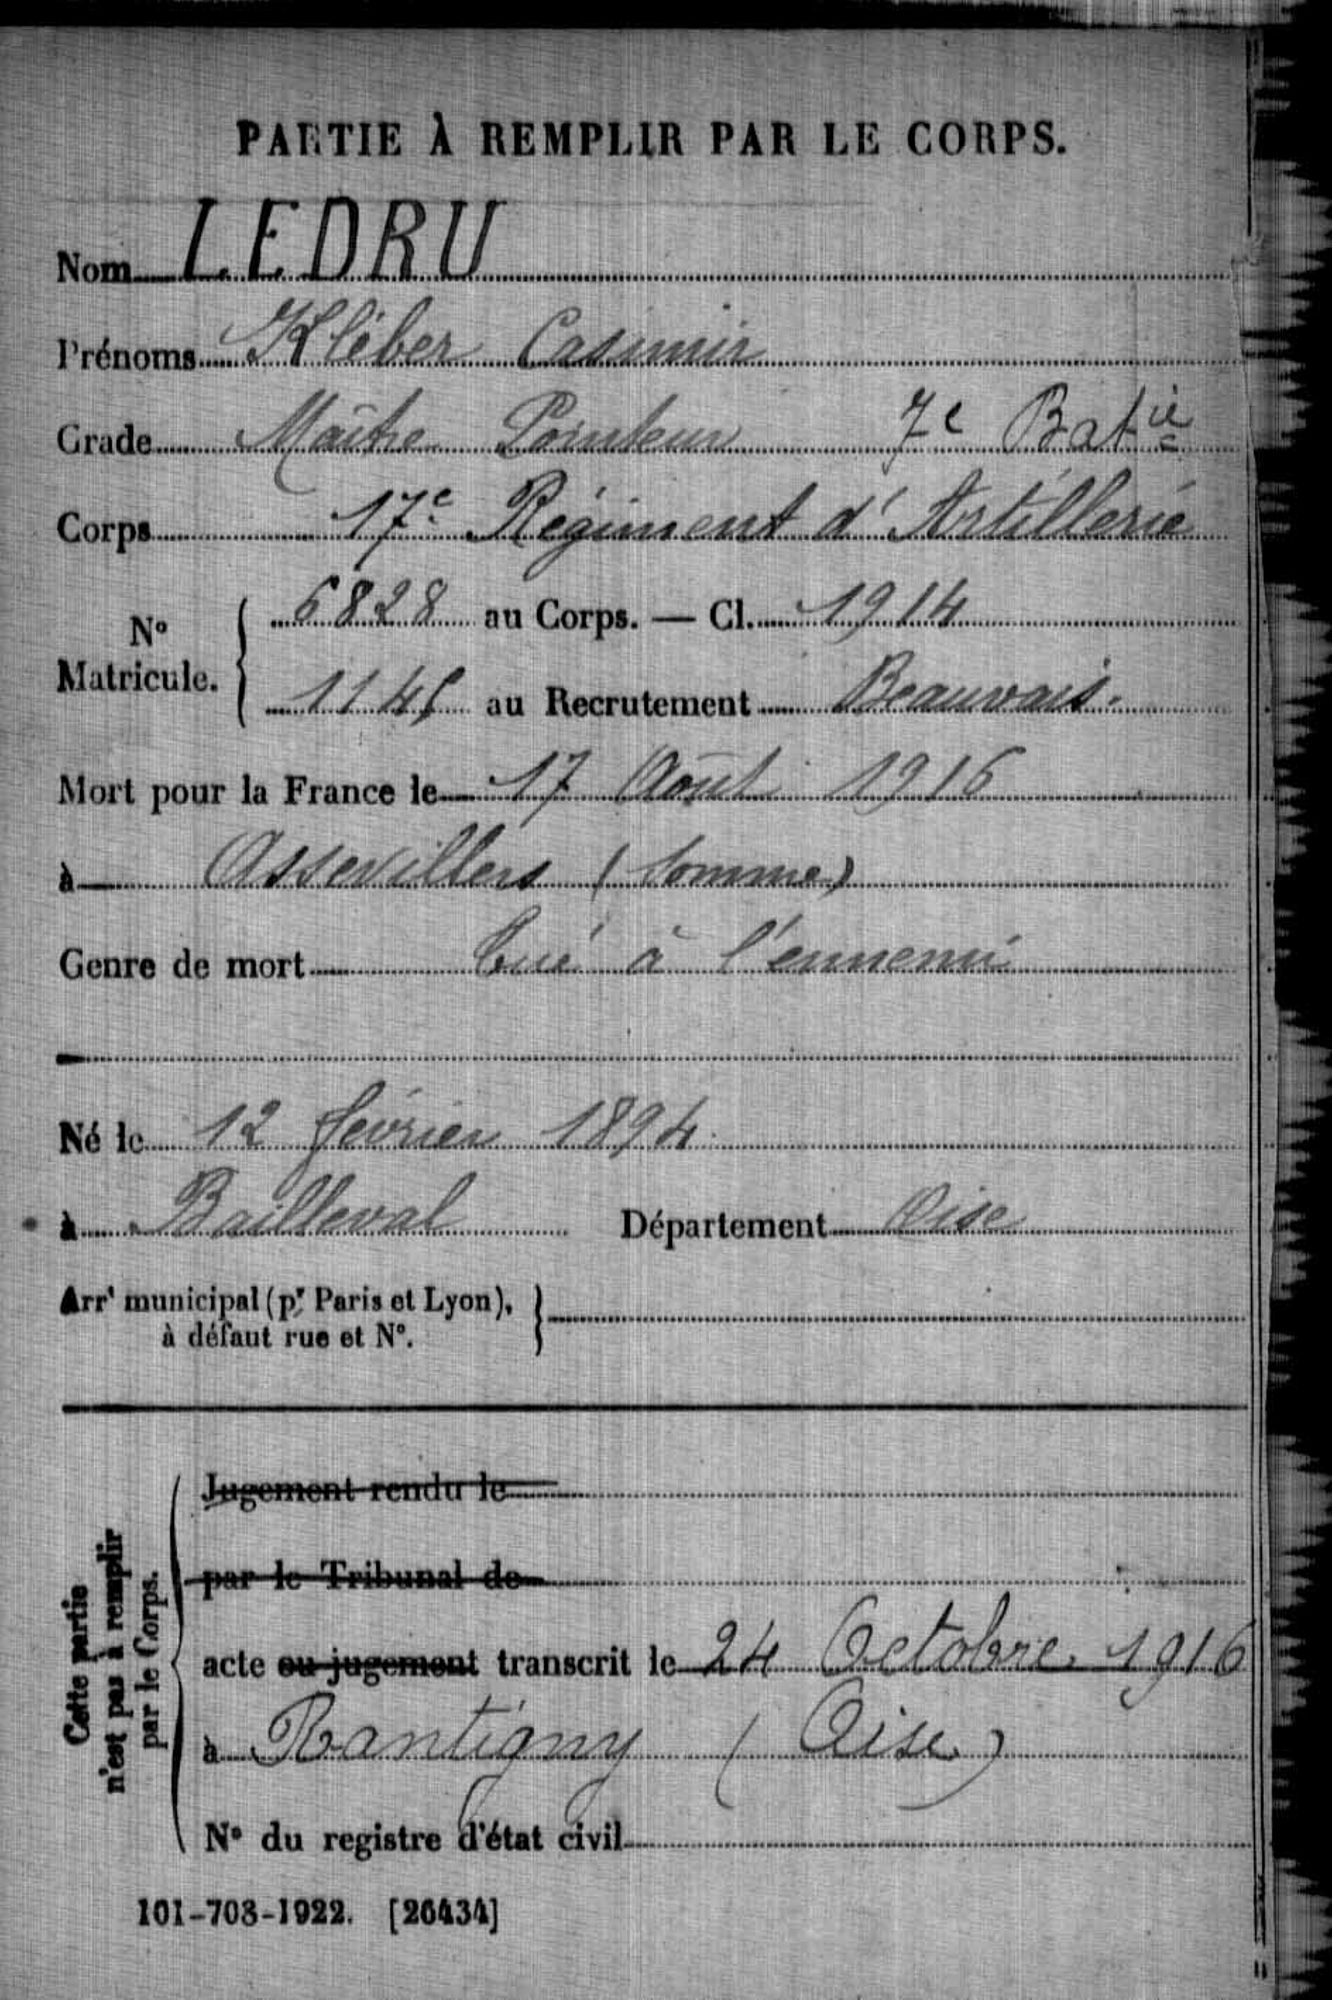 PARTIE À REMPLIR PAR LE CORPS.
Nom LEDRU
Prénoms Kléber Casimir
Grade Maître Pointeur 7e Batie
Corps 17e Régiment d'Artillerie
N° Matricule. 6828 au Corps. — Cl. 1914
1145 au Recrutement Beauvais.
Mort pour la France le 17 Août 1916
à Assevillers (Somme)
Genre de mort Tué à l'ennemi
Né le 12 février 1894
à Bailleval Département Oise
Arrt municipal (pr Paris et Lyon),
à défaut rue et N°.
Cette partie
n'est pas à remplir
par le Corps.
Jugement rendu le
par le Tribunal de
acte ou jugement transcrit le 24 Octobre 1916
à Rantigny (Oise)
N° du registre d'état civil
101-708-1922. [26434]